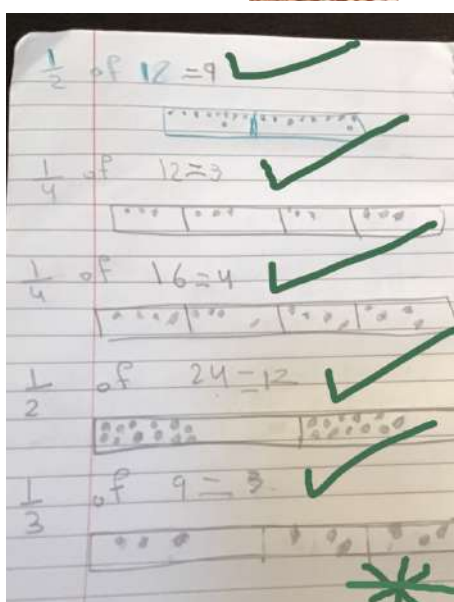 1/2 of 12 = 9
1/4 of 12 = 3
1/4 of 16 = 4
1/2 of 24 = 12
1/3 of 9 = 3